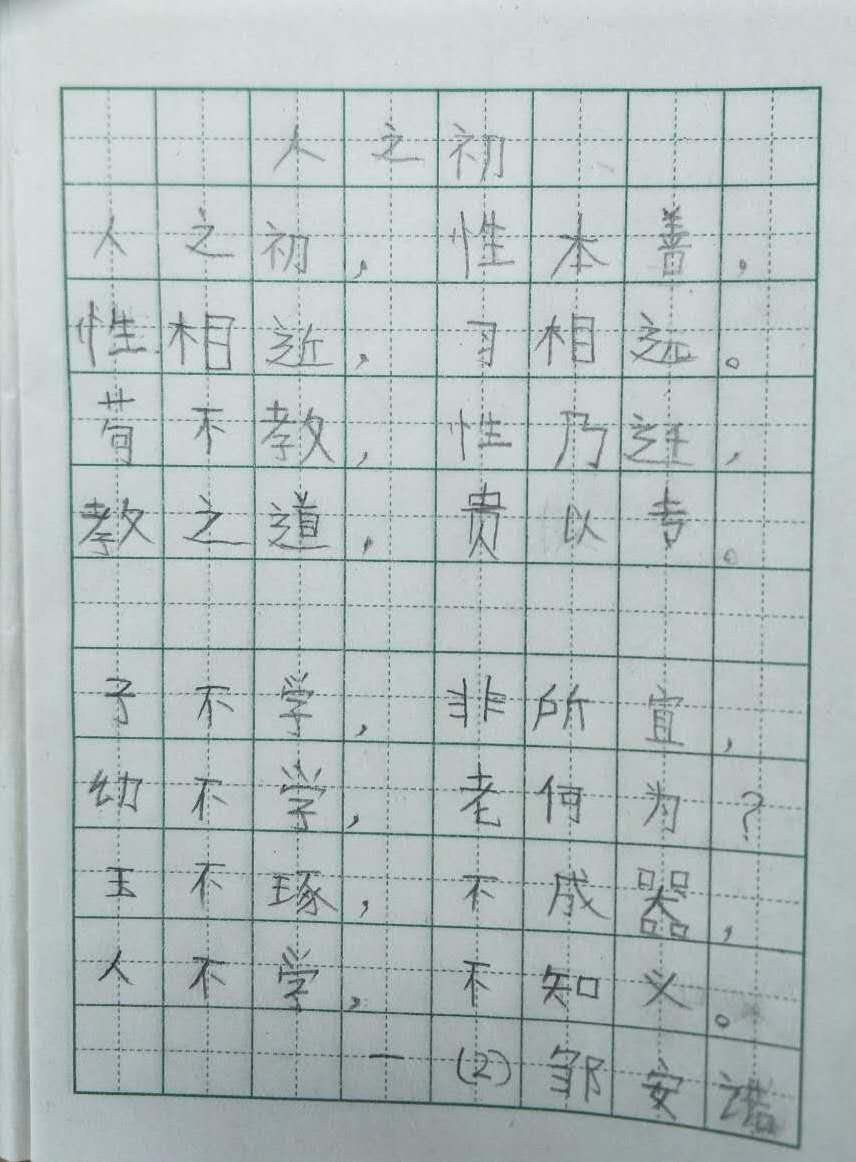 人之初
人之初，性本善，
性相近，习相远。
苟不教，性乃迁，
教之道，贵以专。
子不学，非所宜，
幼不学，老何为？
玉不琢，不成器，
人不学，不知义。
一（2）邹安诺